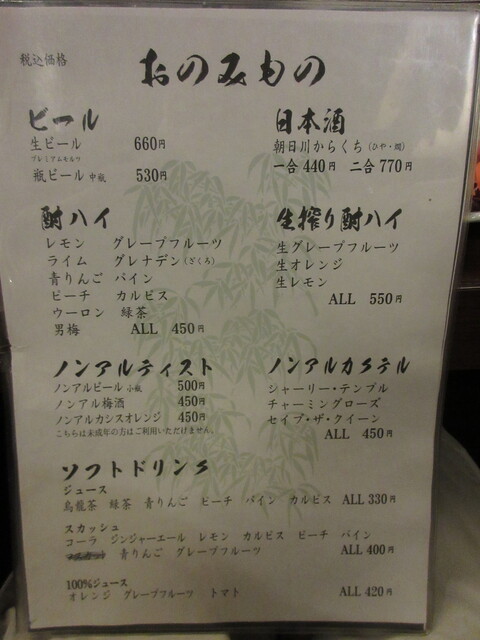 税込価格
おのみもの
ビール
生ビール 660円
プレミアムモルツ
瓶ビール 中瓶 530円
日本酒
朝日川からくち(ひや・燗)
一合 440円 二合 770円
酎ハイ
レモン グレープフルーツ
ライム グレナデン(ざくろ)
青りんご パイン
ピーチ カルピス
ウーロン 緑茶
男梅 ALL 450円
生搾り酎ハイ
生グレープフルーツ
生オレンジ
生レモン
ALL 550円
ノンアルティスト
ノンアルビール 小瓶 500円
ノンアル梅酒 450円
ノンアルカシスオレンジ 450円
こちらは未成年の方はご利用いただけません。
ノンアルカクテル
シャーリー・テンプル
チャーミングローズ
セイブ・ザ・クイーン
ALL 450円
ソフトドリンク
ジュース
烏龍茶 緑茶 青りんご ピーチ パイン カルピス ALL 330円
スカッシュ
コーラ ジンジャーエール レモン カルピス ピーチ パイン
青りんご グレープフルーツ ALL 400円
100%ジュース
オレンジ グレープフルーツ トマト ALL 420円